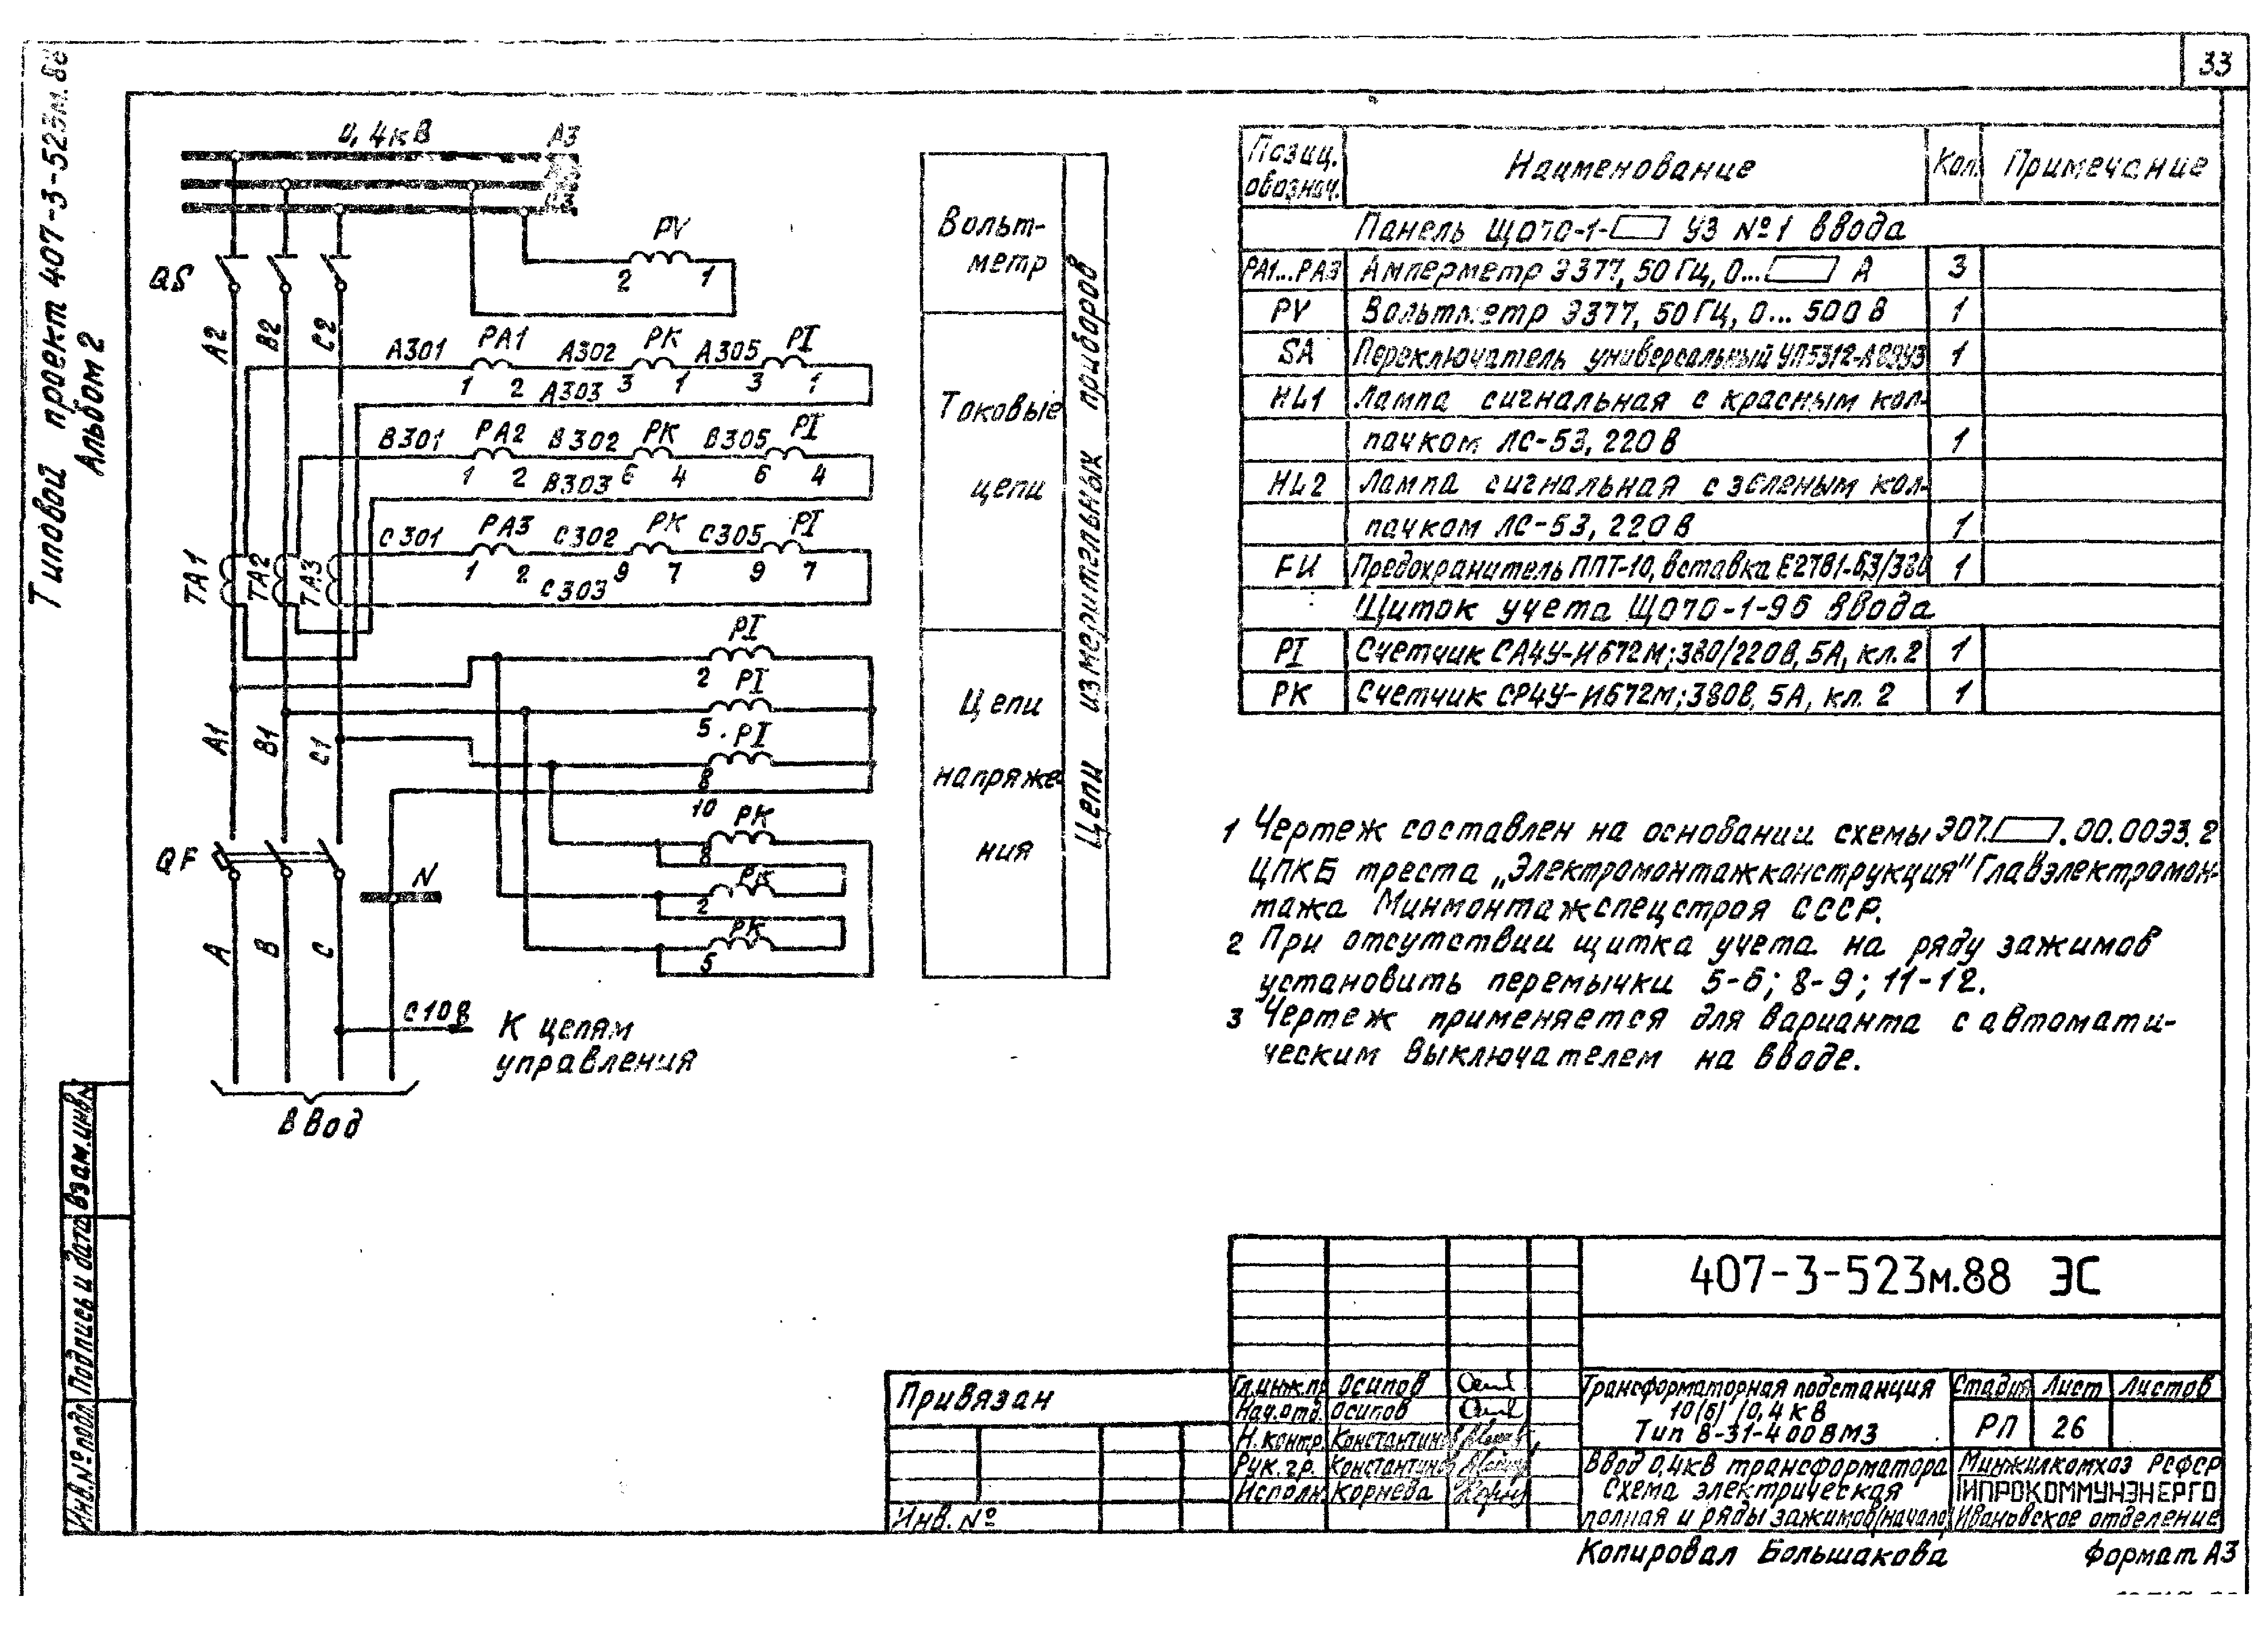 33
Типовой проект 407-3-523м.88
Альбом 2
0,4кВ
А3
А3
QS
PV
2 1
А2
В2
С2
А301 РА1 А302 РК А305 PI
1 2 А303 3 1 3 1
В301 РА2 В302 РК В305 PI
1 2 В303 6 4 6 4
С301 РА3 С302 РК С305 PI
1 2 С303 9 7 9 7
ТА1
ТА2
ТА3
PI
2 PI
5 PI
8
10 РК
8
РК
2
РК
5
А1
В1
С1
QF
N
А
В
С
С108
К цепям
управления
Ввод
Вольт-
метр
Токовые
цепи
Цепи
напряже-
ния
Цепи измерительных приборов
Позиц. обознач. Наименование Кол. Примечание
Панель ЩО70-1- У3 №1 ввода
РА1...РА3 Амперметр Э377, 50 Гц, 0... А 3
PV Вольтметр Э377, 50 Гц, 0...500 В 1
SA Переключатель универсальный УП5312-А89У3 1
HL1 Лампа сигнальная с красным кол-
пачком ЛС-53, 220 В 1
HL2 Лампа сигнальная с зеленым кол-
пачком ЛС-53, 220 В 1
FU Предохранитель ППТ-10, вставка Е27В1-6,3/380 1
Щиток учета ЩО70-1-95 ввода
PI Счетчик СА4У-И672М; 380/220В, 5А, кл. 2 1
РК Счетчик СР4У-И672М; 380В, 5А, кл. 2 1
1 Чертеж составлен на основании схемы Э07. .00.00ЭЗ.2
ЦПКБ треста „Электромонтажконструкция" Главэлектромон-
тажа Минмонтажспецстроя СССР.
2 При отсутствии щитка учета на ряду зажимов
установить перемычки 5-6; 8-9; 11-12.
3 Чертеж применяется для варианта с автомати-
ческим выключателем на вводе.
407-3-523м.88 ЭС
Привязан
Инв. №
Гл.инж.пр Осипов
Нач.отд. Осипов
Н.контр. Константинов
Рук.гр. Константинов
Исполн. Корнева
Трансформаторная подстанция
10(6)/0,4 кВ
Тип В-31-400ВМ3
Стадия Лист Листов
РП 26
Ввод 0,4кВ трансформатора
Схема электрическая
полная и ряды зажимов (начало)
Минжилкомхоз РСФСР
ГИПРОКОММУНЭНЕРГО
Ивановское отделение
Взам.инв.№
Подпись и дата
Инв.№ подл.
Копировал Большакова
Формат А3